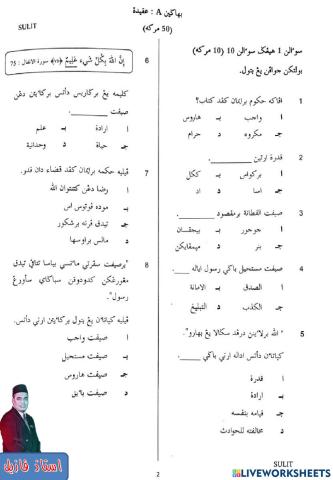 بهاݢين A : عقيدة
(50 مركه)
SULIT
سوءالن 1 هيڠݢ سوءالن 10 (10 مركه)
بولتکن جواڤن يڠ بتول.
1 اڤاكه حكوم براٸمان كڤد كتاب؟
ا واجب بـ هاروس
جـ مكروه د حرام
2 قدرة ارتين ________
ا بركواس بـ ككل
جـ اسا د اد
3 صيفت الفطانة برمقصود ________
ا جوجور بـ بيجقسان
جـ بنر د مڽمڤايكن
4 صيفت مستحيل باݢي رسول اياله ____
ا الصدق بـ الامانة
جـ الكذب د التبليغ
5 " الله برلاٸينن درڤد سݢالا يڠ بهارو".
كياتاٴن دأتس اداله ارتي باݢي ________.
ا قدرة
بـ ارادة
جـ قيامه بنفسه
د مخالفته للحوادث
6 إِنَّ اللَّهَ بِكُلِّ شَيْءٍ عَلِيمٌ ﴿٧٥﴾ سورة الانفال : 75
كليمه يڠ برݢاريس دأتس بركاٸيتن دڠن
صيفت ________
ا ارادة بـ علم
جـ حياة د وحدانية
7 ڤيليه حكمه براٸمان كڤد قضاء دان قدر.
ا رضا دڠن كتنتوان الله
بـ موده ڤوتوس اس
جـ تيدق ڤرنه برشكور
د مالس براوسها
8 "برصيفت سڤرتي مأنسي بياسا تتاڤي تيدق
مڠورڠكن كدودوقن سباݢاي سأورڠ
رسول".
ڤيليه كياتاٴن يڠ بتول بركاٸيتن ارتي دأتس.
ا صيفت واجب
بـ صيفت مستحيل
جـ صيفت هاروس
د صيفت باٸيق
استاذ فازيل
2
SULIT
LIVEWORKSHEETS